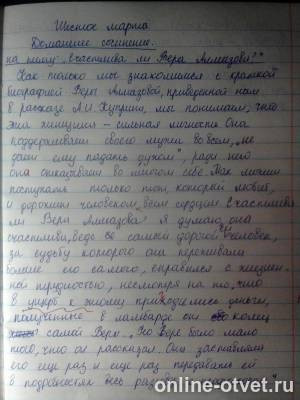 Шестое марта.
Домашнее сочинение.
на тему „Счастлива ли Вера Алмазова?"
Как только мы знакомимся с краткой
биографией Веры Алмазовой, приведенной нам
в рассказе А.И. Куприна, мы понимаем, что
эта женщина – сильная личность. Она
поддерживала своего мужа во всем, „не
дает ему падать духом", ради него
она отказывала во многом себе. Так может
поступать только тот, который любит,
и дорожит человеком всем сердцем. Счастлива
ли Вера Алмазова? Я думаю, она
счастлива, ведь ее самый дорогой человек,
за судьбу которого она переживала
больше его самого, справился с жизнен-
ной трудностью, несмотря на то, что
в ущерб к этому приходились деньги,
полученные в ломбарде от колец
самой Веры. „Но Вере было мало
того, что он рассказал. Она заставляла
его еще раз и еще раз передавать ей
в подробностях весь раз
online-otvet.ru